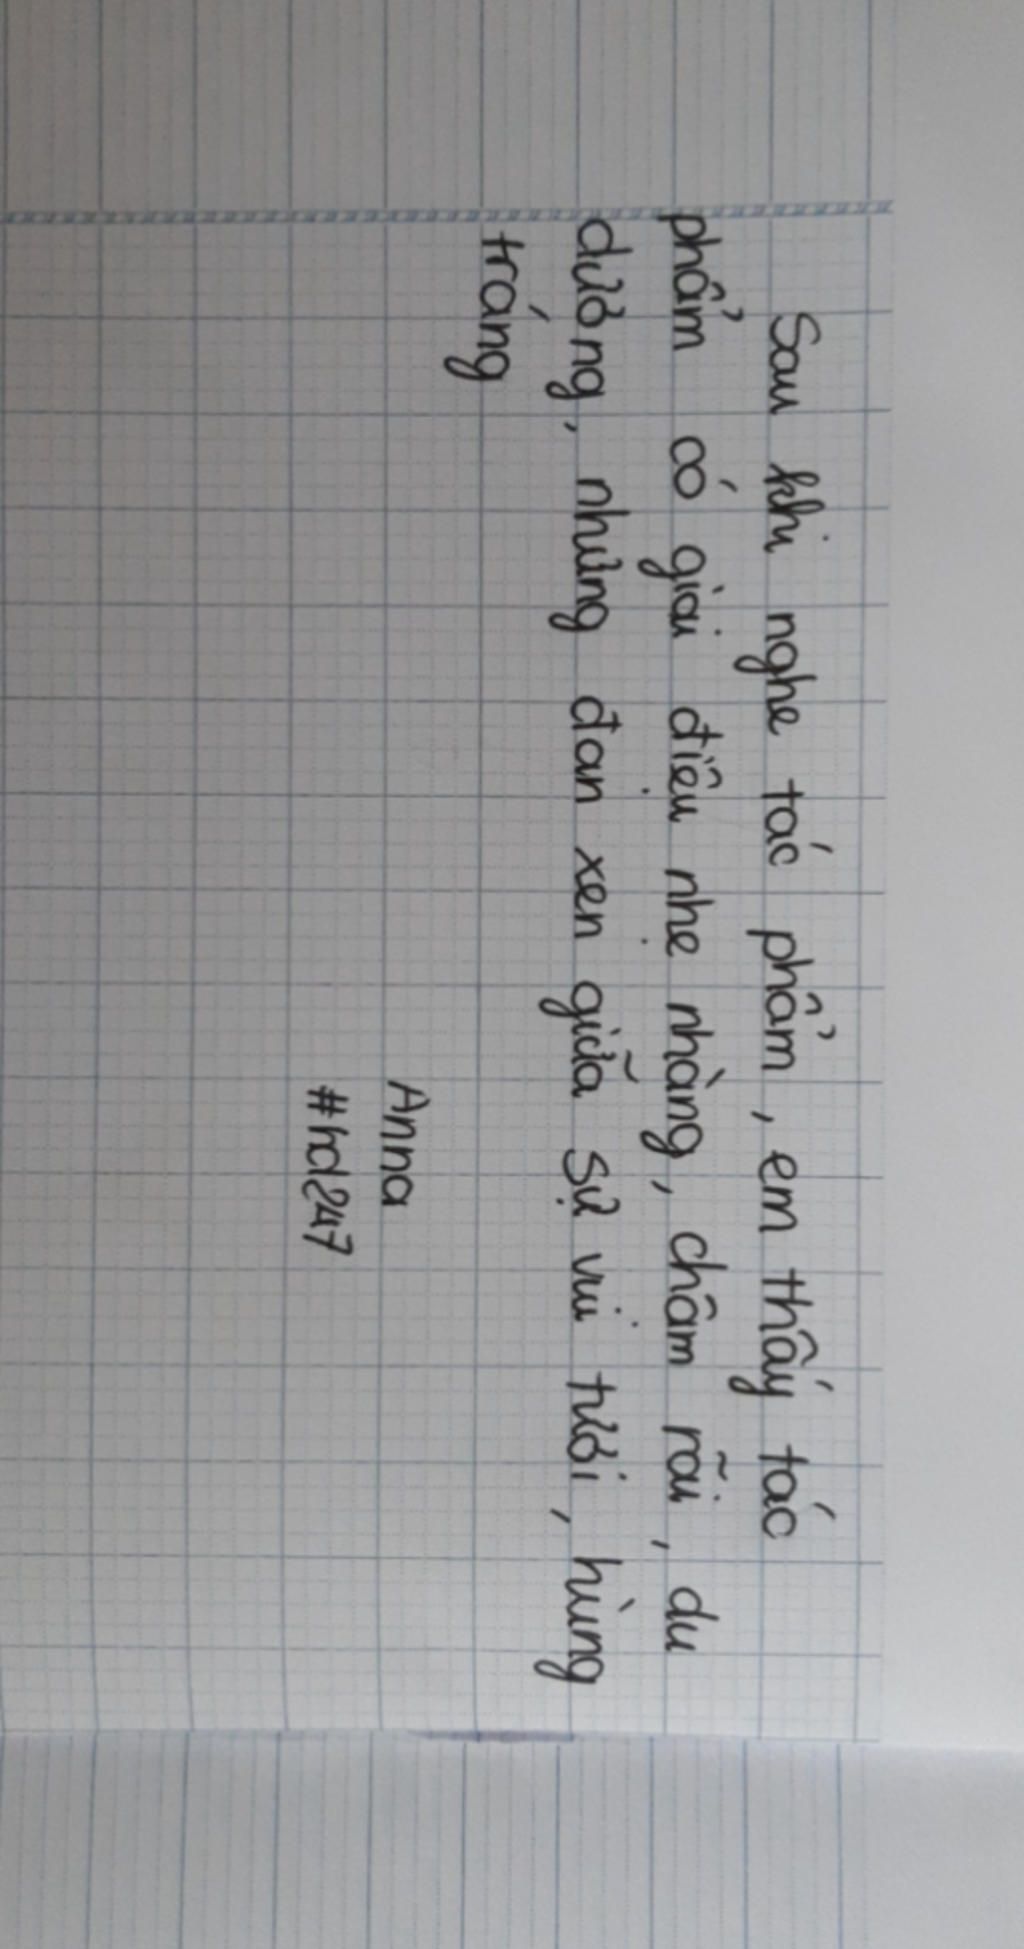 Sau khi nghe tác phẩm, em thấy tác
phẩm có giai điệu nhẹ nhàng, châm rãi, du
dương, nhưng đan xen giữa sự vui tươi, hùng
tráng
Anna
#hd247